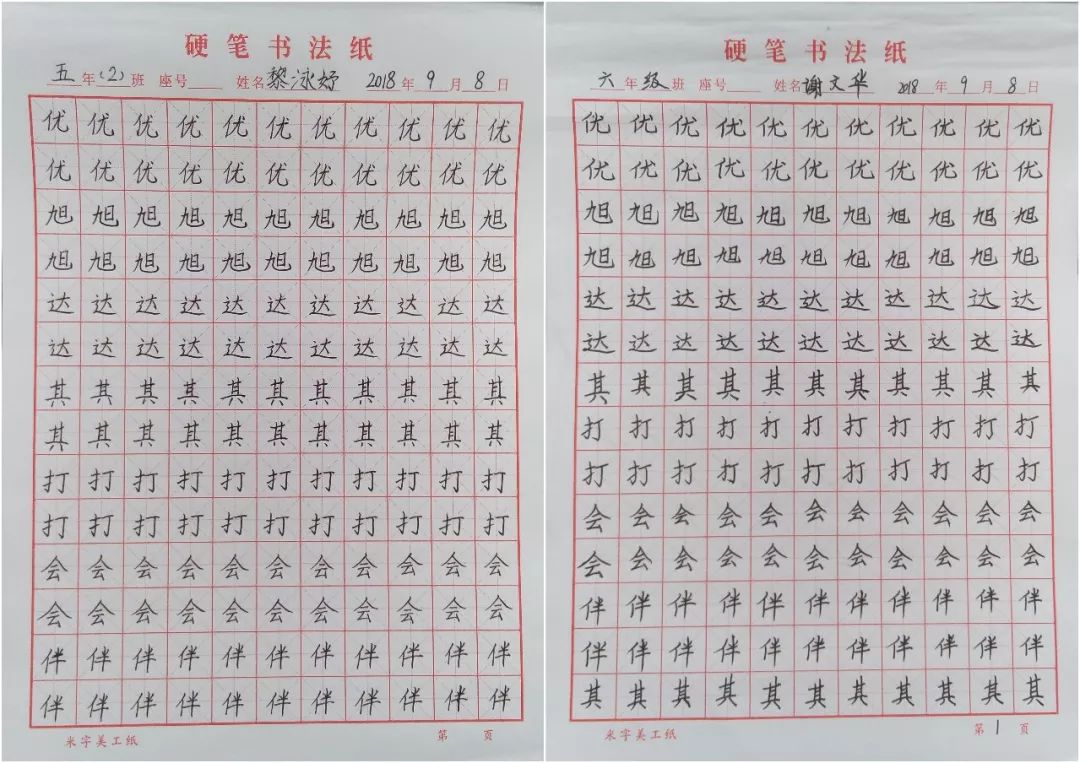 硬笔书法纸
五年(2)班 座号 姓名黎泳妤 2018年9月8日
优优优优优优优优优优优
优优优优优优优优优优优
旭旭旭旭旭旭旭旭旭旭旭
旭旭旭旭旭旭旭旭旭旭旭
达达达达达达达达达达达
达达达达达达达达达达达
其其其其其其其其其其其
其其其其其其其其其其其
打打打打打打打打打打打
打打打打打打打打打打打
会会会会会会会会会会会
会会会会会会会会会会会
伴伴伴伴伴伴伴伴伴伴伴
伴伴伴伴伴伴伴伴伴伴伴
米字美工纸 第 页
硬笔书法纸
六年级班 座号 姓名谢文华 2018年9月8日
优优优优优优优优优优优
优优优优优优优优优优优
旭旭旭旭旭旭旭旭旭旭旭
旭旭旭旭旭旭旭旭旭旭旭
达达达达达达达达达达达
达达达达达达达达达达达
其其其其其其其其其其其
打打打打打打打打打打打
打打打打打打打打打打打
会会会会会会会会会会会
会会会会会会会会会会会
伴伴伴伴伴伴伴伴伴伴伴
伴伴伴伴伴伴伴伴伴伴伴
其其其其其其其其其其其
米字美工纸 第1页